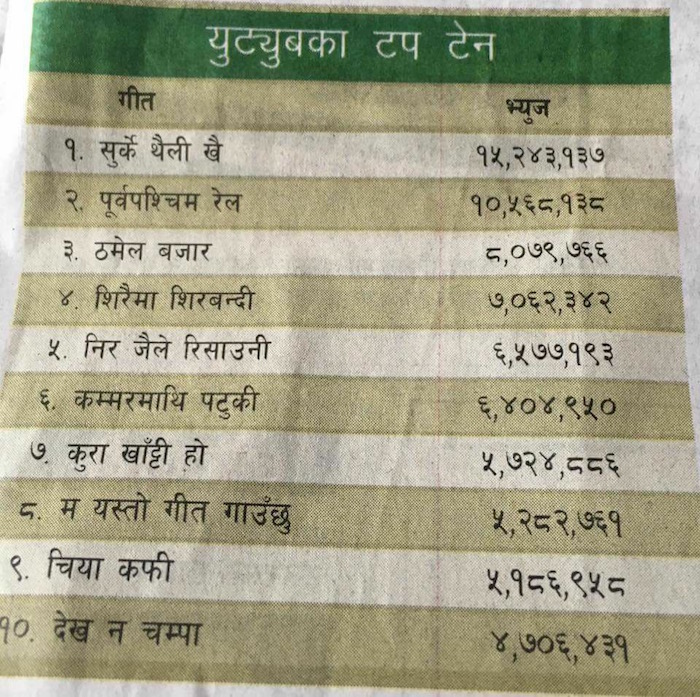 युट्युबका टप टेन
गीत भ्युज
१. सुर्के थैली खै १५,२४३,१३७
२. पूर्वपश्चिम रेल १०,५६८,१३८
३. ठमेल बजार ८,०७९,७६६
४. शिरैमा शिरबन्दी ७,०६२,३४२
५. निर जैले रिसाउनी ६,५७७,१९३
६. कम्मरमाथि पटुकी ६,४०४,९५०
७. कुरा खाँट्टी हो ५,७२४,८८६
८. म यस्तो गीत गाउँछु ५,२८२,७६१
९. चिया कफी ५,१८६,९५८
१०. देख न चम्पा ४,७०६,४३१